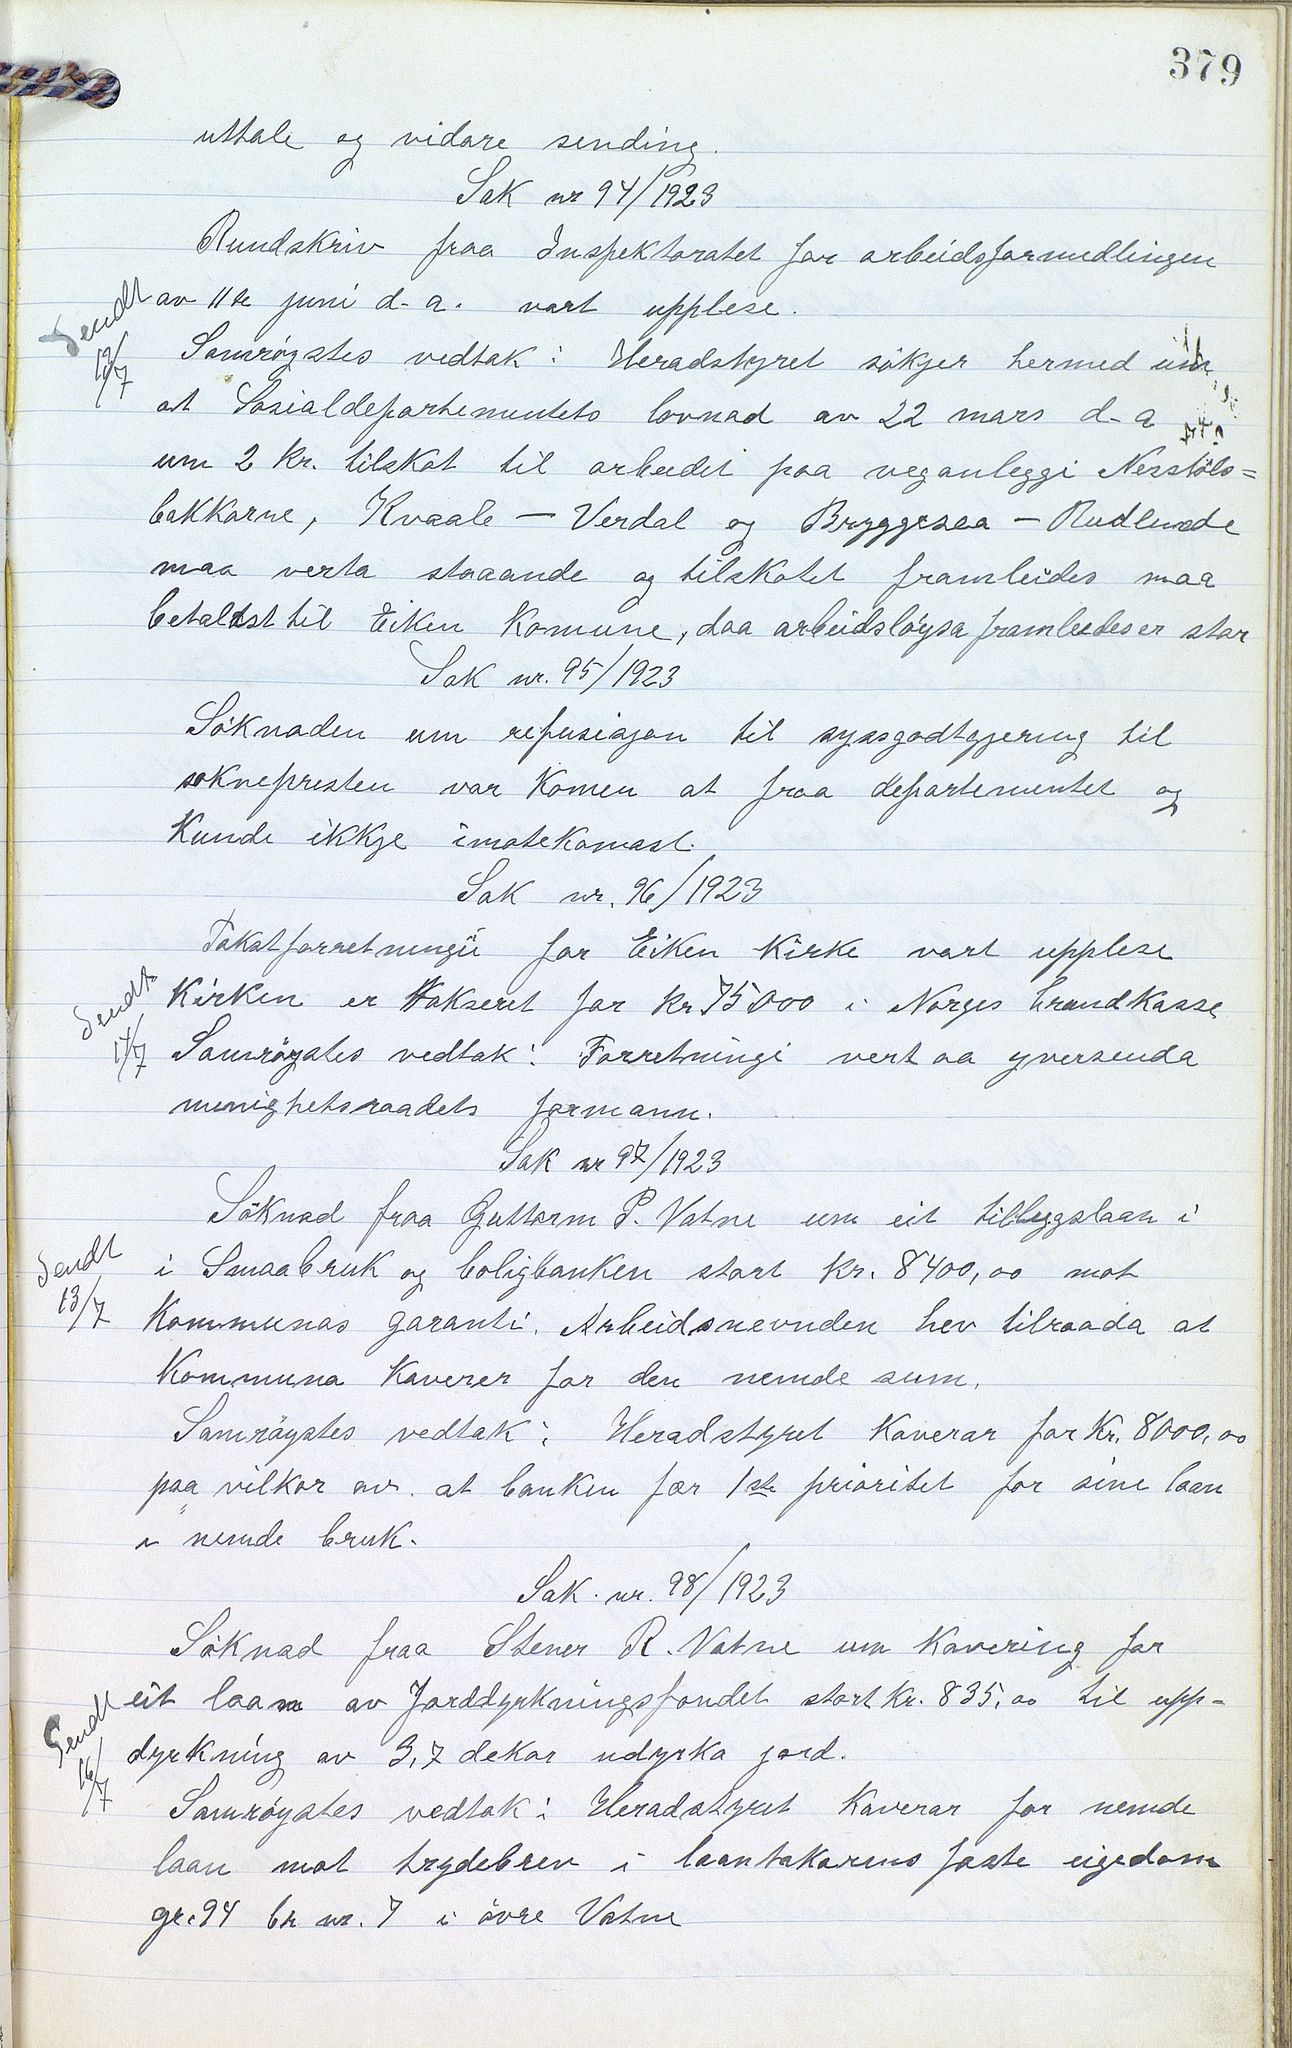 379
uttale og vidare sending.
Sak nr 94/1923
Rundskriv fraa Inspektoratet for arbeidsformedlingen
Sendt av 11te juni d-a. vart upplese.
12/7 Samrøystes vedtak: Heradstyret søkjer hermed um
at Sosialdepartementets lovnad av 22 mars d-a
um 2 kr. tilskot til arbeidet paa veganleggi Nesstöls=
bakkarne, Kvaale - Verdal og Bryggesaa - Rudlende
maa verta staaande og tilskotet framleides maa
betalast til Eiken Komune, daa arbeidsløysa framleides er stor
Sak nr. 95/1923
Söknaden um refusiajon til skyssgodtgjering til
soknepresten var komen at fraa departementet og
kunde ikkje imøtekomast.
Sak nr. 96/1923
Takstforretningii for Eiken Kirke vart upplese
Sendt Kirken er takseret for kr 75000 i Norges brandkasse
17/7 Samrøystes vedtak: Forretningi vert aa yversenda
menighetsraadets formann.
Sak nr 97/1923
Söknad fraa Guttorm P. Vatne um eit tilleggslaan i
Sendt i Smaabruk og boligbanken stort kr. 8400,00 mot
13/7 Kommunas garanti. Arbeidsnevnden hev tilraada at
Kommuna kaverer for den nemde sum.
Samrøystes vedtak: Heradstyret kaverar for kr. 8000,00
paa vilkor av at banken fær 1ste prioritet for sine laan
i nemde bruk.
Sak nr. 98/1923
Söknad fraa Stener R. Vatne um kavering for
Sendt eit laan av Jorddyrkningsfondet stort kr. 835,00 til upp-
16/7 dyrkning av 3,7 dekar udyrka jord.
Samrøystes vedtak: Heradstyret kaverar for nemde
laan mot trydebrev i laantakarens faste eigedom
gr. 94 br nr. 7 i övre Vatne